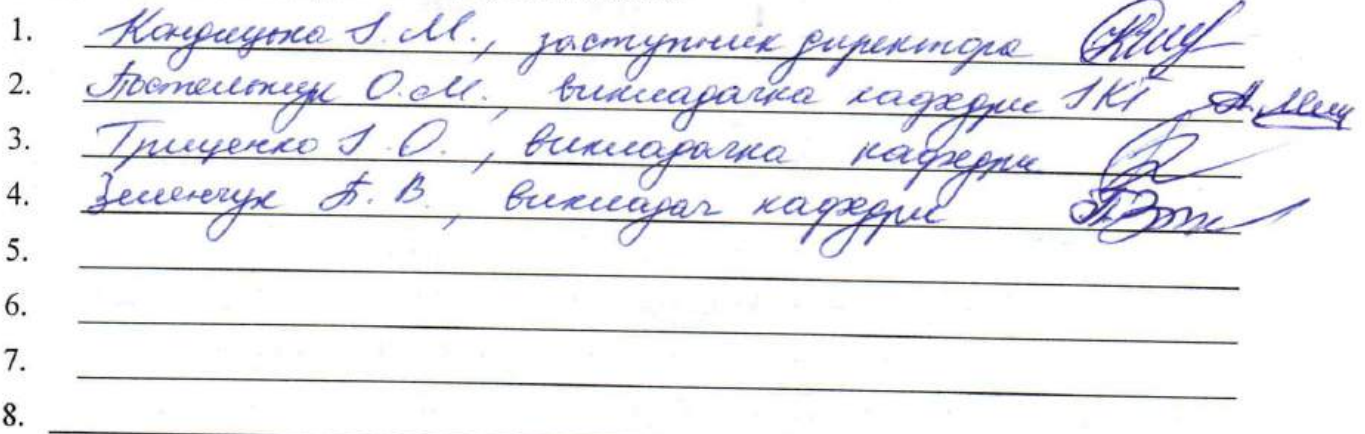 1. Кондицька І. М., заступник директора
2. Постельжук О. М., викладачка кафедри ІКТ
3. Грищенко І. О., викладачка кафедри
4. Зеленчук Т. В., викладач кафедри
5.
6.
7.
8.